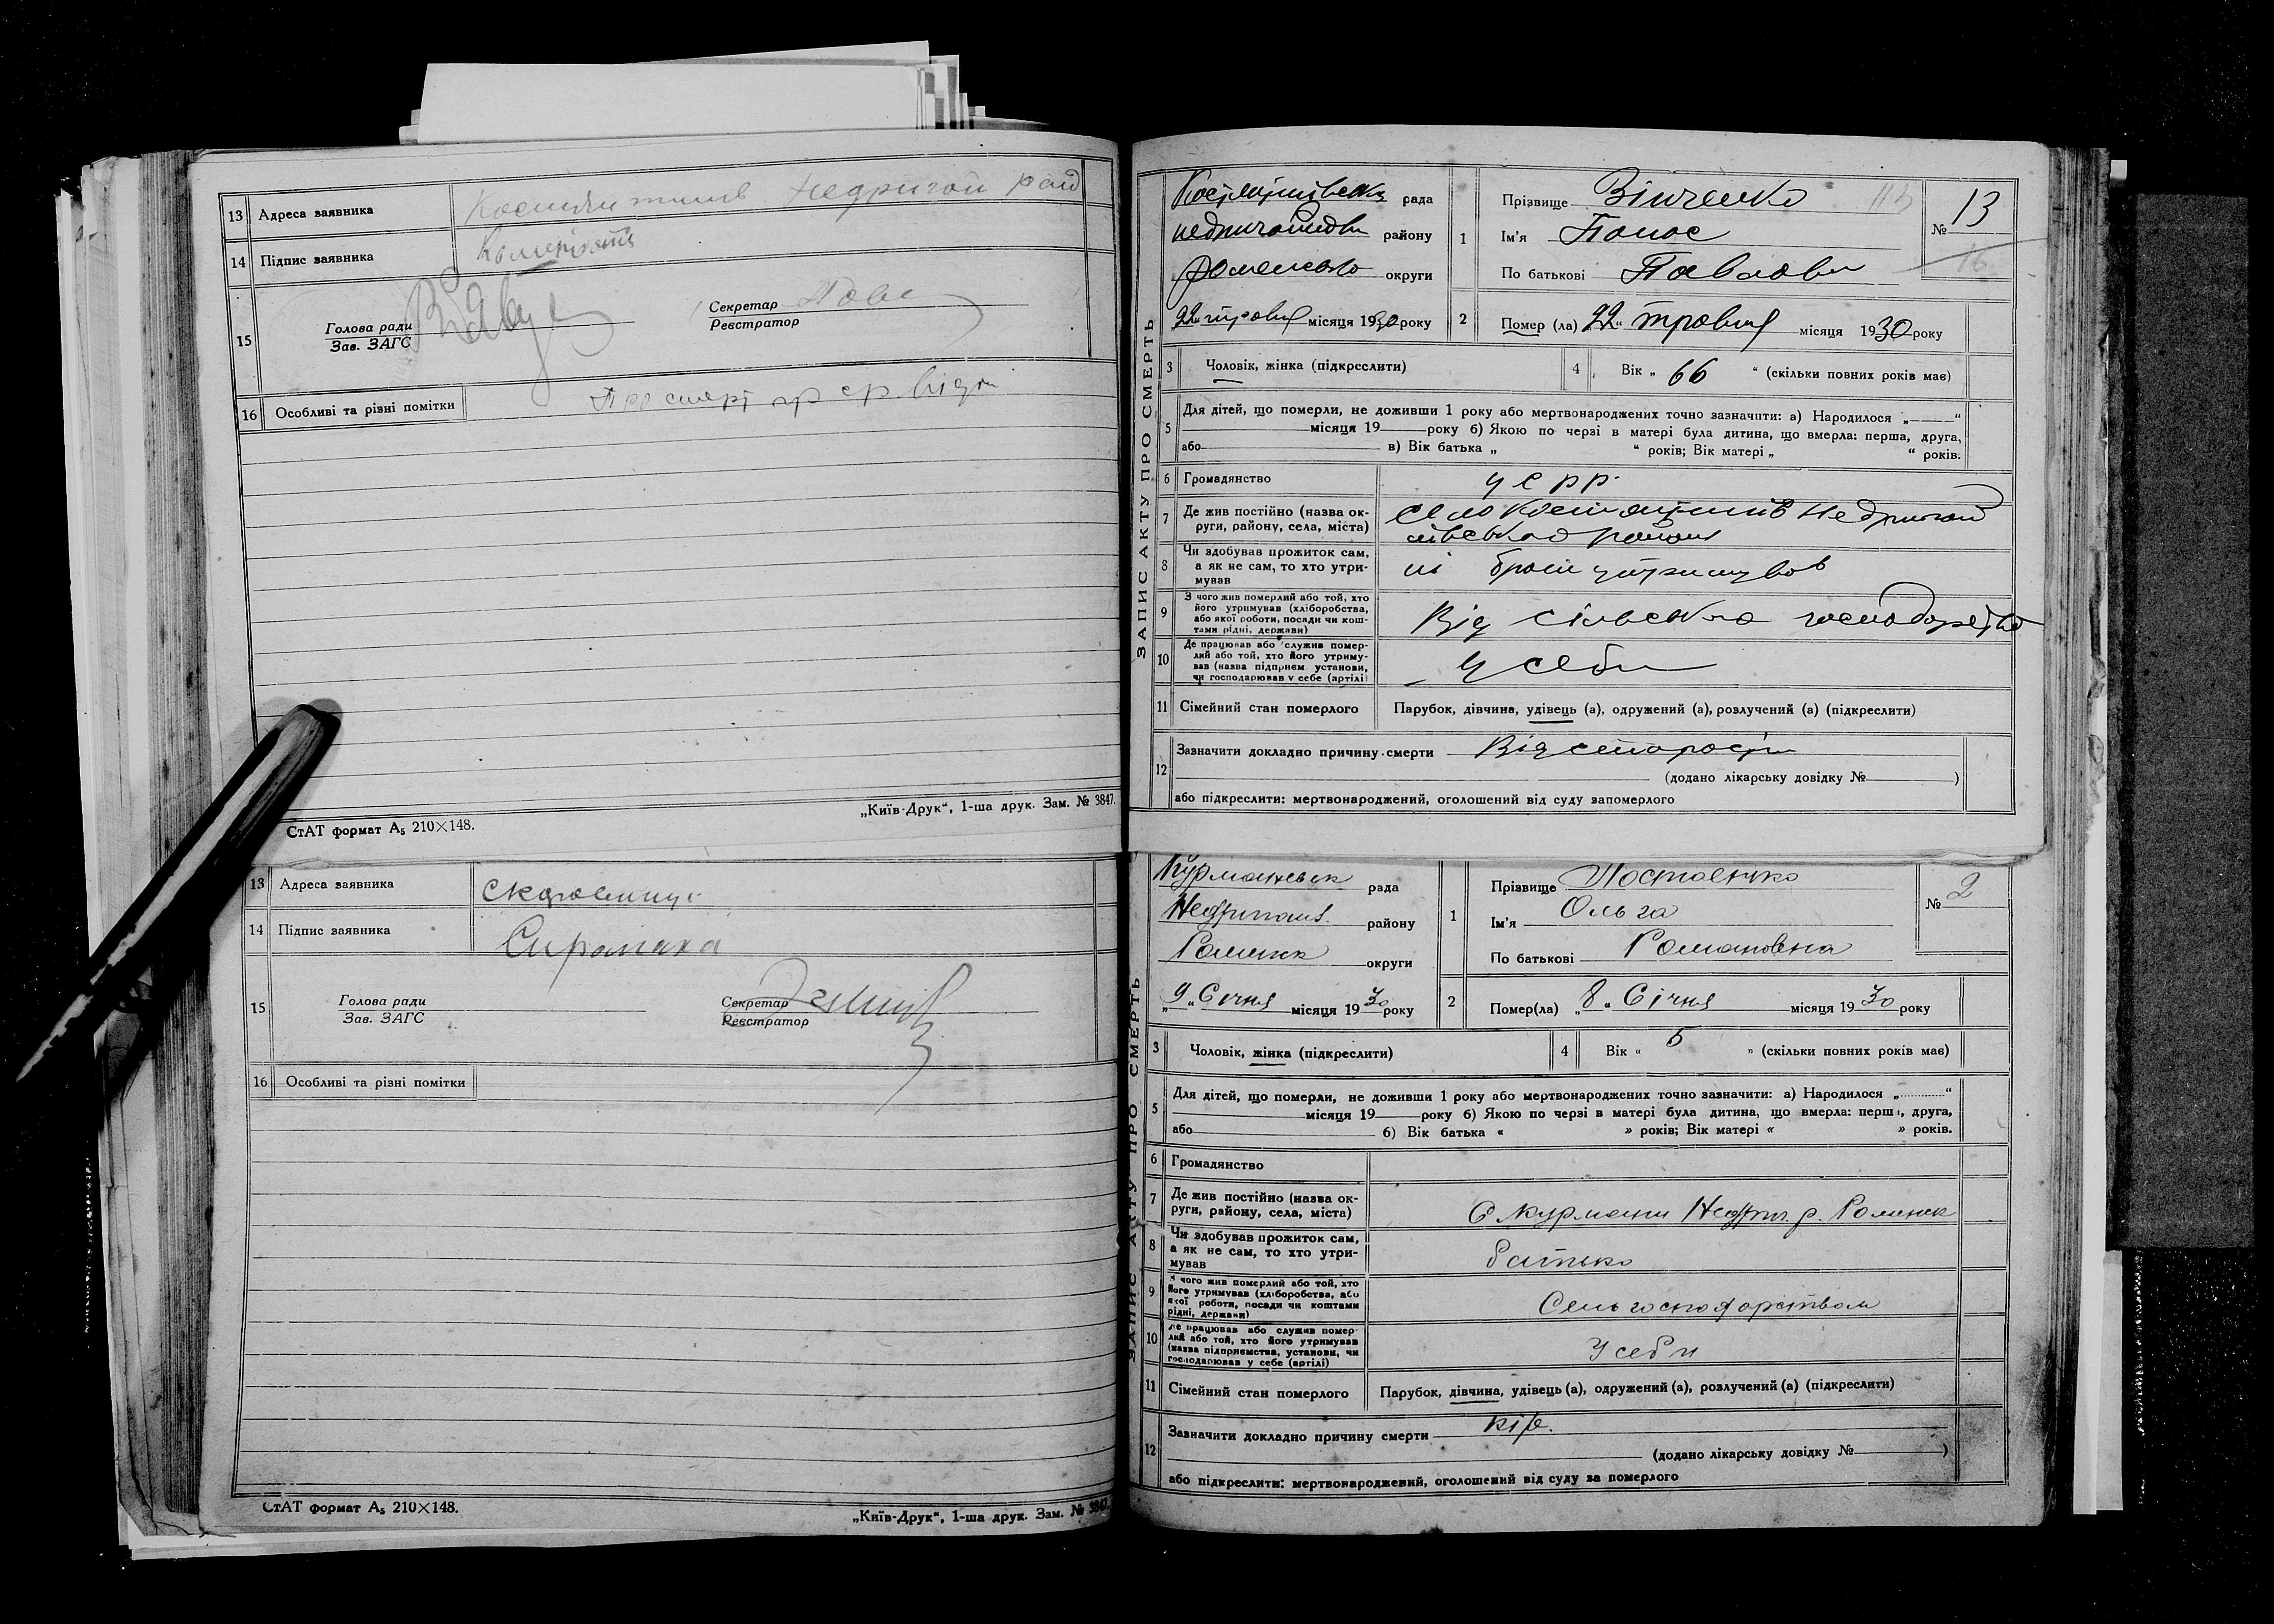 13 Адреса заявника
14 Підпис заявника
15 Голова ради
Зав. ЗАГС
Секретар
Реєстратор
16 Особливі та різні помітки
СтАТ формат А₅ 210×148.
„Київ-Друк“, 1-ша друк. Зам. № 3847.
13 Адреса заявника
14 Підпис заявника
15 Голова ради
Зав. ЗАГС
Секретар
Реєстратор
16 Особливі та різні помітки
СтАТ формат А₅ 210×148.
„Київ-Друк“, 1-ша друк. Зам. № 3847.
ЗАПИС АКТУ ПРО СМЕРТЬ
рада
району
округи
22 травня місяця 1930 року
1 Прізвище Вінченко
Ім'я Панас
По батькові Павлови
№ 13
2 Помер (ла) 22“ травня місяця 1930 року
3 Чоловік, жінка (підкреслити)
4 Вік „ 66 “ (скільки повних років має)
5 Для дітей, що померли, не доживши 1 року або мертвонароджених точно зазначити: а) Народилося „ “
місяця 19 року б) Якою по черзі в матері була дитина, що вмерла: перша, друга,
або в) Вік батька „ “ років; Вік матері „ “ років.
6 Громадянство УСРР
7 Де жив постійно (назва ок-
руги, району, села, міста) село
8 Чи здобував прожиток сам,
а як не сам, то хто утри-
мував ні брат утримував
9 З чого жив померлий або той, хто
його утримував (хліборобства,
або якої роботи, посади чи кош-
тами рідні, держави) Від сільського господарства
10 Де працював або служив помер-
лий або той, хто його утриму-
вав (назва підприєм установи,
чи господарював у себе (артілі) У себи
11 Сімейний стан померлого Парубок, дівчина, удівець (а), одружений (а), розлучений (а) (підкреслити)
12 Зазначити докладно причину смерти Від старости
(додано лікарську довідку № )
або підкреслити: мертвонароджений, оголошений від суду запомерлого
ЗАПИС АКТУ ПРО СМЕРТЬ
Курманськ рада
району
округи
„9“ Січня місяця 1930 року
1 Прізвище
Ім'я Ольга
По батькові Романовна
№ 2
2 Помер(ла) „8“ Січня місяця 1930 року
3 Чоловік, жінка (підкреслити)
4 Вік « 5 » (скільки повних років має)
5 Для дітей, що померли, не доживши 1 року або мертвонароджених точно зазначити: а) Народилося „ “
місяця 19 року б) Якою по черзі в матері була дитина, що вмерла: перша, друга,
або б) Вік батька « » років; Вік матері « » років.
6 Громадянство
7 Де жив постійно (назва ок-
руги, району, села, міста) С Курмани
8 Чи здобував прожиток сам,
а як не сам, то хто утри-
мував батько
9 З чого жив померлий або той, хто
його утримував (хліборобства, або
якої роботи, посади чи коштами
рідні, держави) Сель господарством
10 Де працював або служив помер-
лий або той, хто його утримував
(назва підприємства, установи, чи
господарював у себе (артілі) У себи
11 Сімейний стан померлого Парубок, дівчина, удівець (а), одружений (а), розлучений (а) (підкреслити)
12 Зазначити докладно причину смерти кір.
(додано лікарську довідку № )
або підкреслити: мертвонароджений, оголошений від суду за померлого